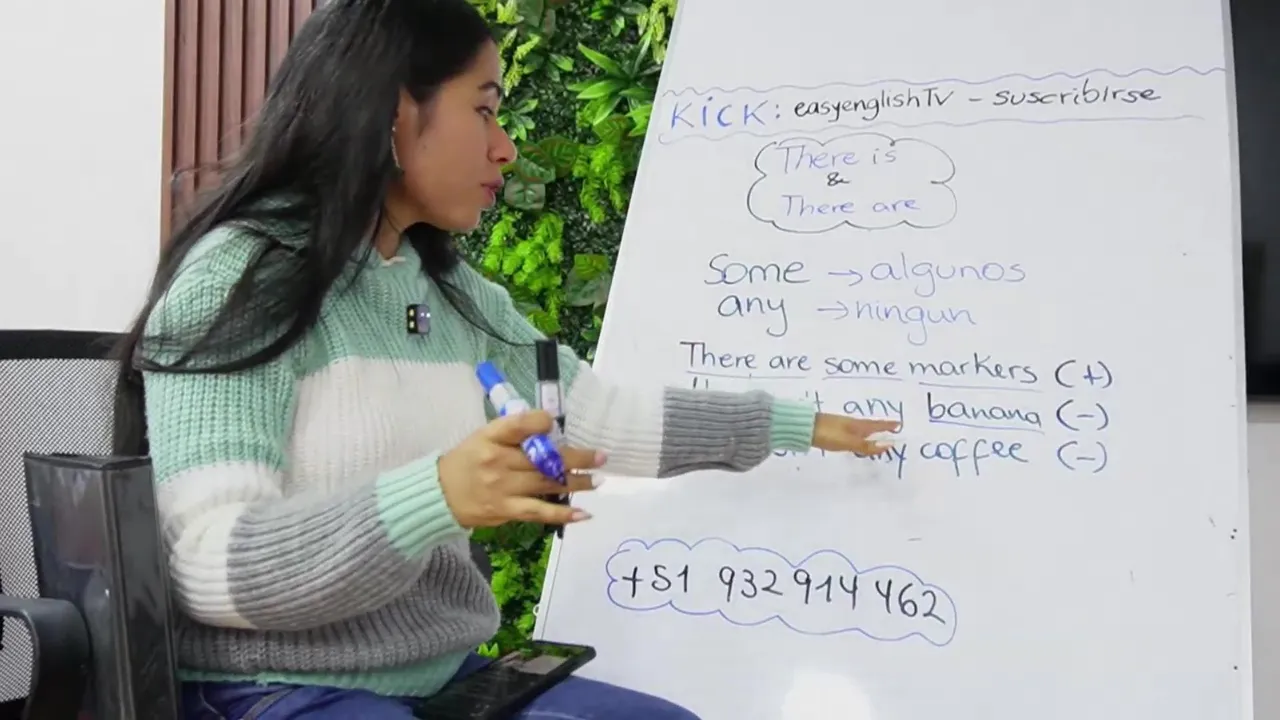 KICK: easyenglishTV - suscribirse
There is
&
There are
Some → algunos
any → ningun
There are some markers (+)
any banana (-)
coffee (-)
+51 932 914 462